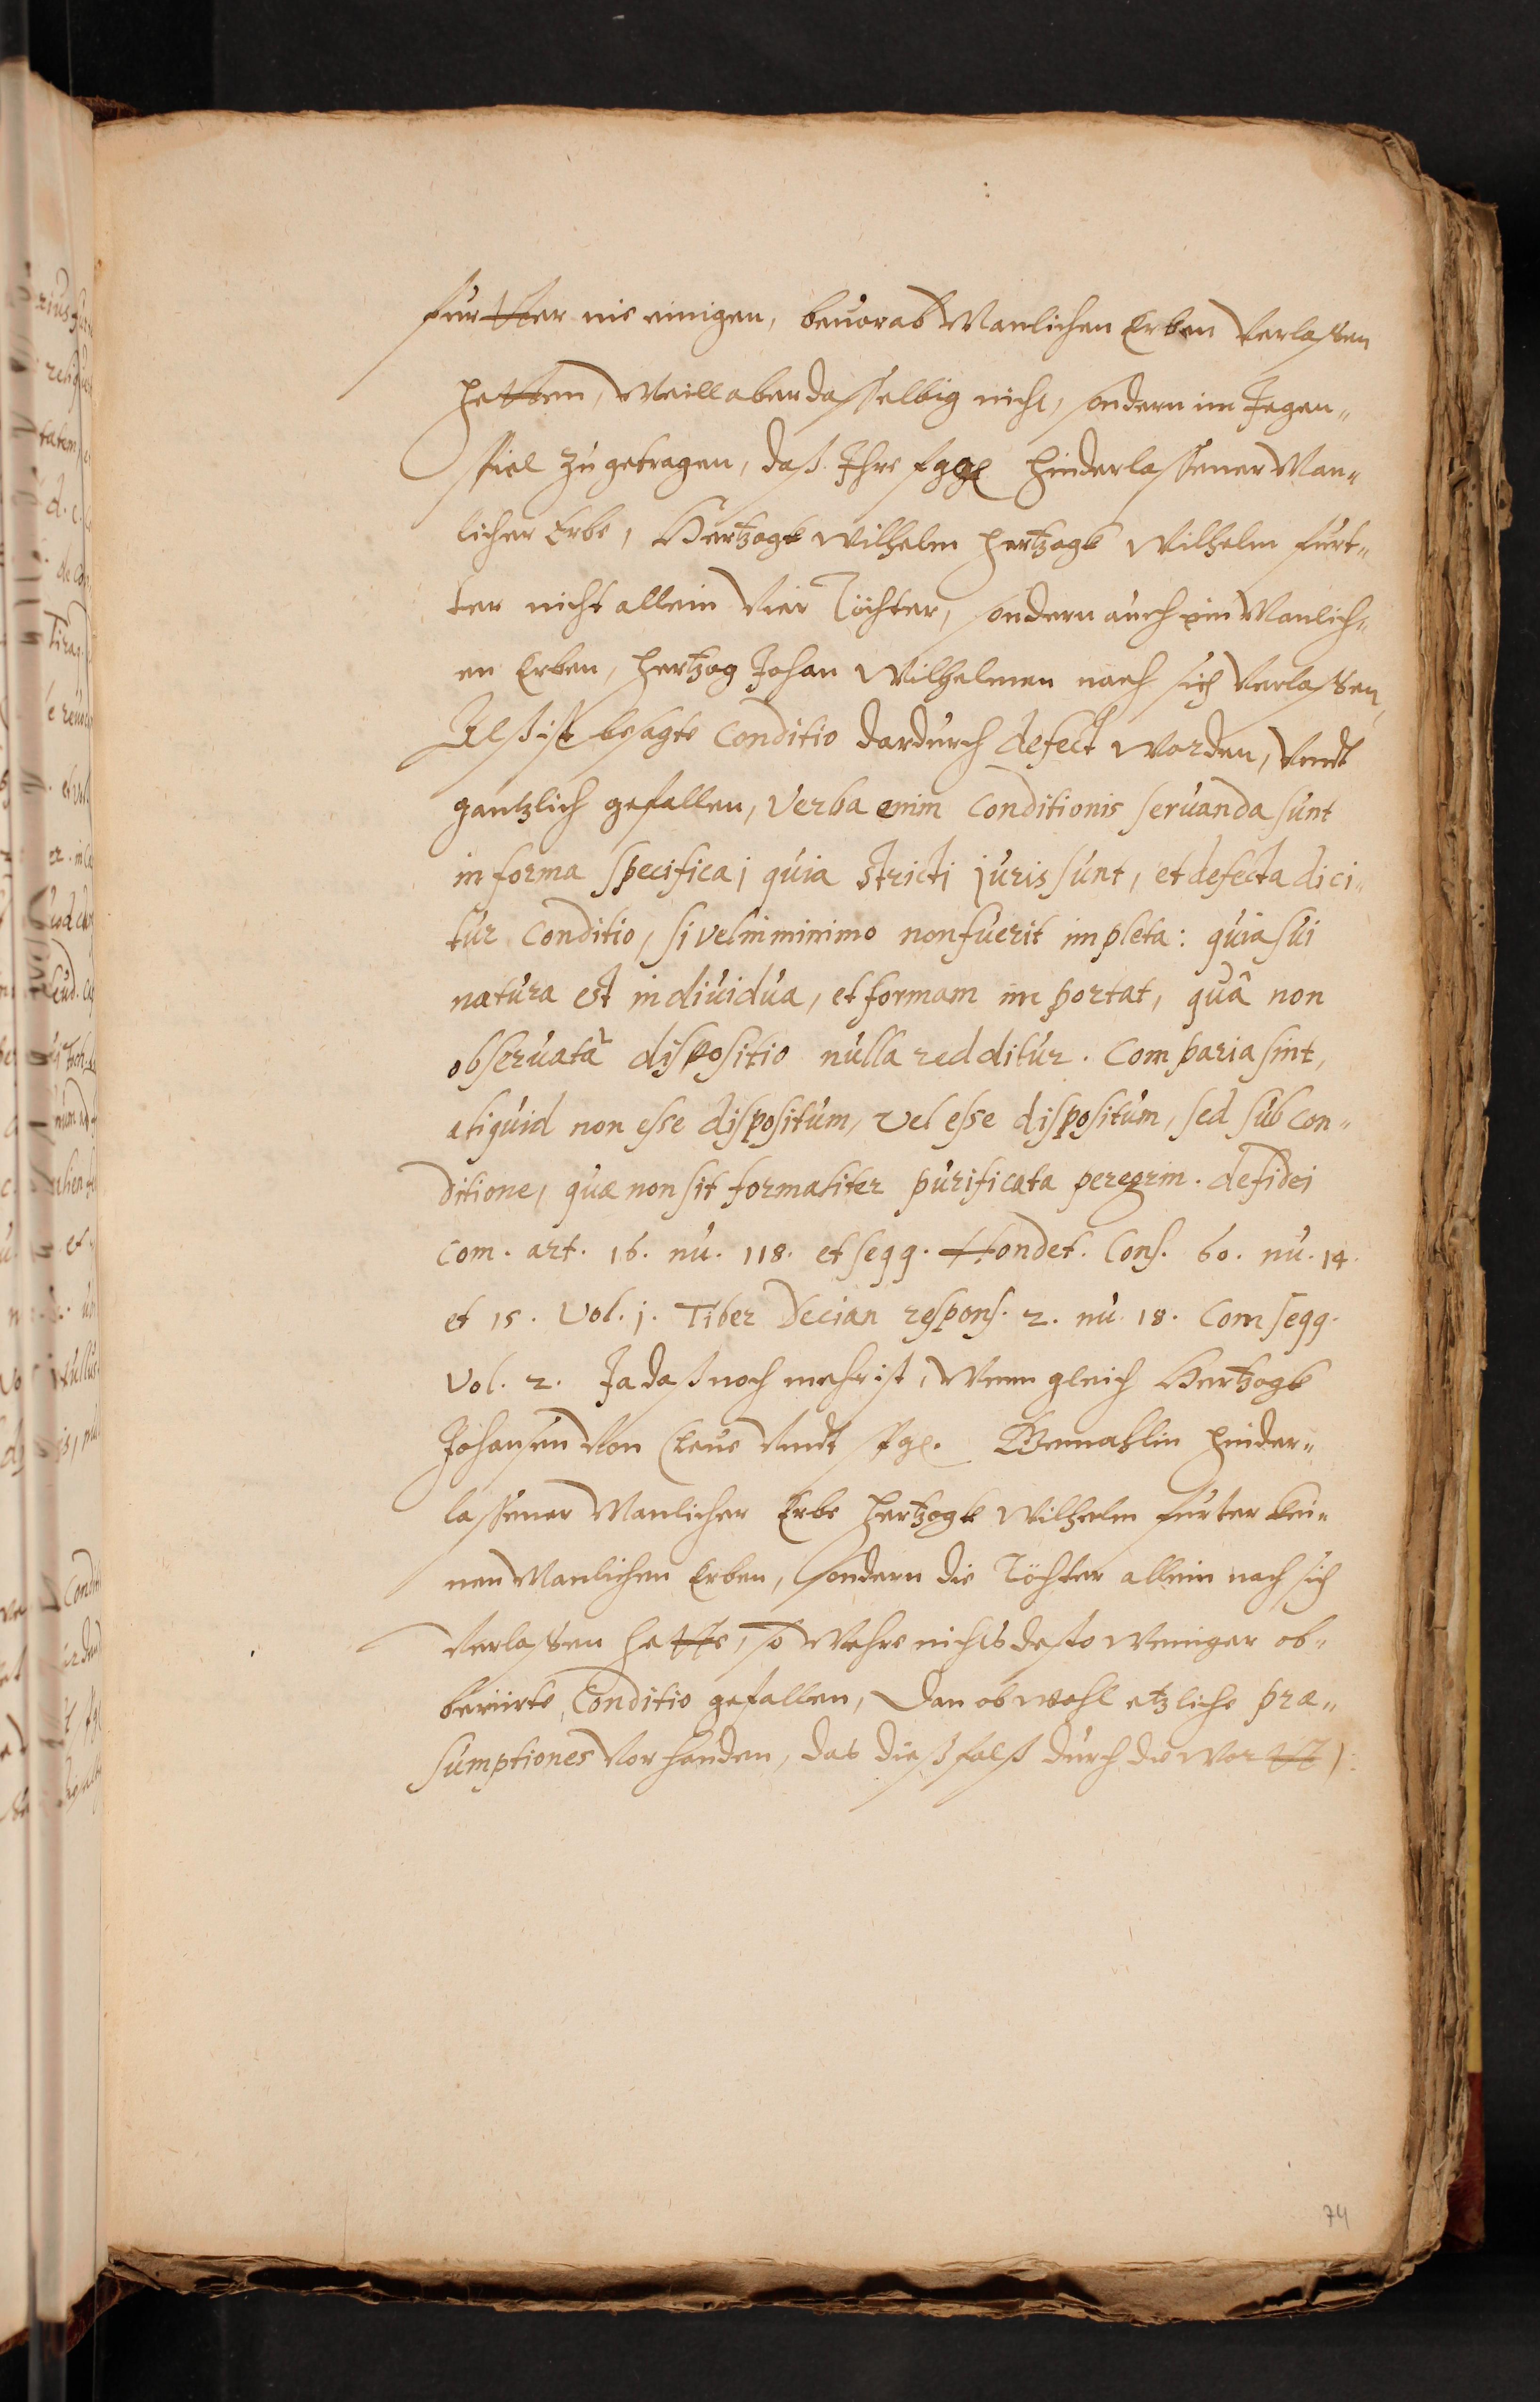 furtter nie einigen, beuorab Manlichen Erben verlassen
hetten, Weill aber dasselbig nicht, sondern im Jegen„
spiel zugetragen, daß Ihre fggl hinderlassener Man„
licher Erbe, Hertzogk Wilhelm hertzogk Wilhelm furt„
ter nicht allein vier Töchter, sondern auch ein Manlich„
en Erben, hertzog Johan Wilhelmen nach sich verlassen,
Alß ist besagte Conditio dardurch defect worden, vndt
gantzlich gefallen, Verba enim Conditionis seruanda sunt
in forma specifica, quia stricti juris sunt, et defecta dici„
tur Conditio, si vel in minimo non fuerit impleta: quia sui
natura est indiuidua, et formam importat, quâ non
obseruatâ dispositio nulla redditur. Com paria sint,
aliquid non esse dispositum, vel esse dispositum, sed sub con„
ditione, quæ non sit formaliter purificata peregrin. de fidei
com. art. 16. nu. 118. et seqq. Hondet. Cons. 60. nu. 14.
et 15. Vol. j. Tiber Decian respons. 2. nu. 18. Com seqq.
Vol. 2. Ja daß noch mehr ist, Wenn gleich Hertzogk
Johansen von Cleue vndt fgl. Gemahlin hinder„
lassener Manlicher Erbe hertzogk Wilhelm furter kei„
nen Manlichen Erben, sondern die Töchter allein nach sich
verlassen hette, so Wehre nichts desto weniger ob„
berürte Conditio gefallen, Dan ob wohl etzliche præ„
sumptiones vorhanden, das dießfalß durch die wortt):
74